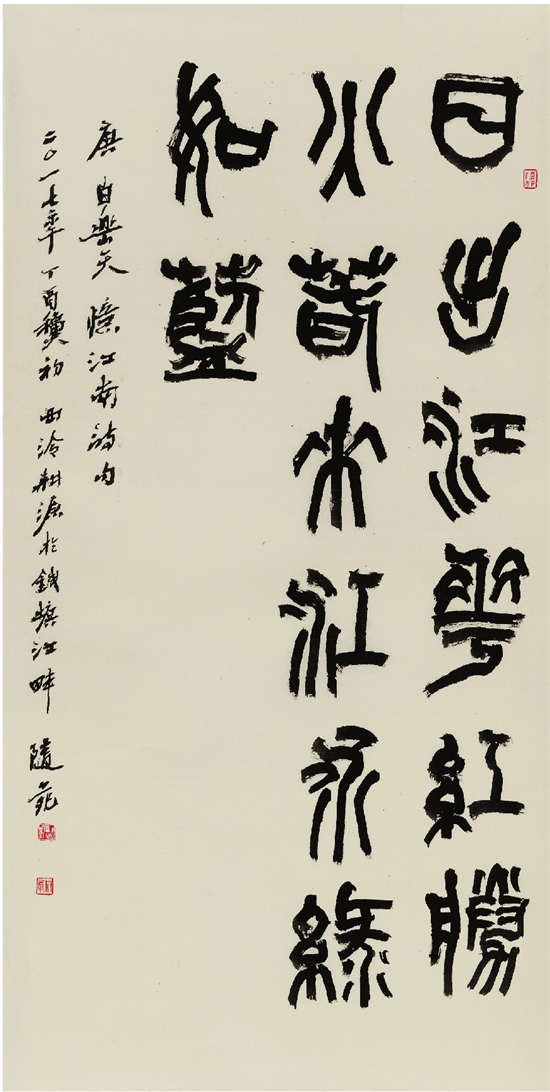 日出江華紅勝
火萅來江水綠
如藍
唐白樂天憶江南詩句
二〇一七年丁酉龝初西泠耕源於錢塘江畔隨苑